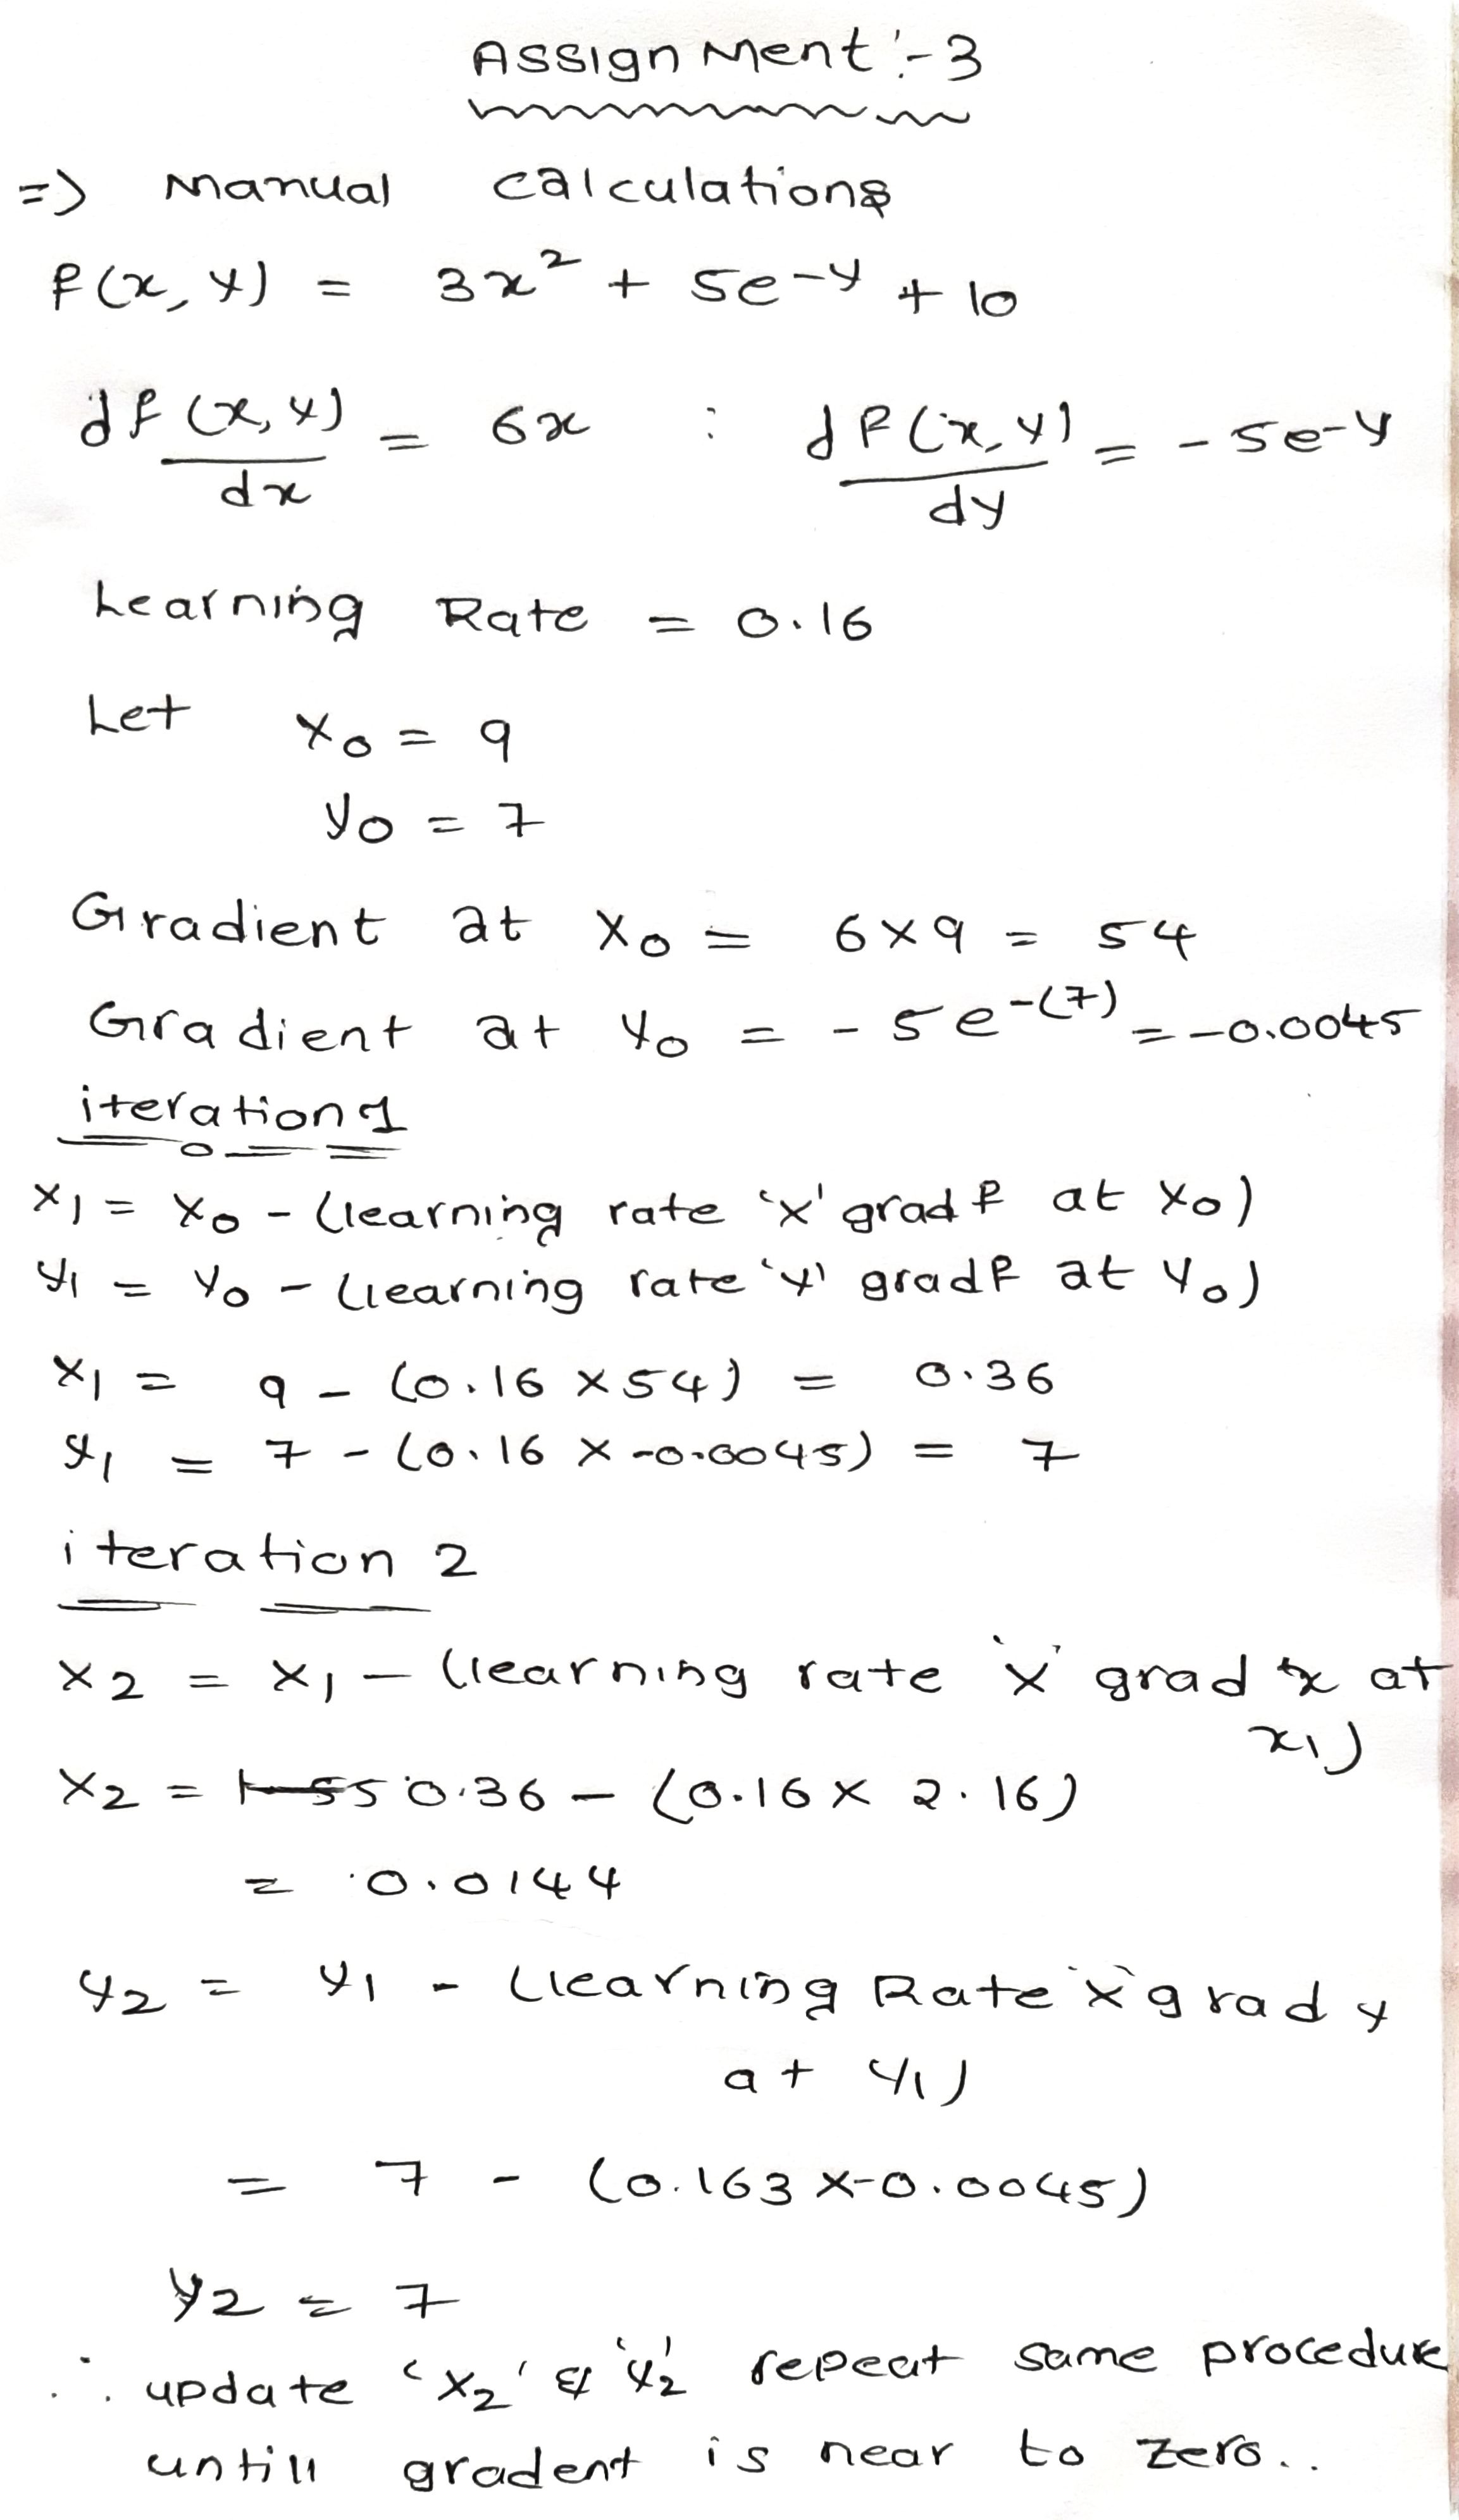 Assignment :- 3
=> Manual calculations
f(x, y) = 3x² + 5e-y + 10
df(x, y)/dx = 6x : df(x, y)/dy = -5e-y
Learning Rate = 0.16
Let x0 = 9
y0 = 7
Gradient at x0 = 6x9 = 54
Gradient at y0 = -5e-(7) = -0.0045
iteration 1
x1 = x0 - (learning rate 'x' grad f at x0)
y1 = y0 - (learning rate 'y' gradf at y0)
x1 = 9 - (0.16 x 54) = 0.36
y1 = 7 - (0.16 x -0.0045) = 7
iteration 2
x2 = x1 - (learning rate 'x' grad x at
x1)
x2 = 0.36 - (0.16 x 2.16)
= 0.0144
y2 = y1 - (learning Rate 'x' grad y
at y1)
= 7 - (0.163 x -0.0045)
y2 = 7
∴ update 'x2' & 'y2' repeat same procedure
untill gradent is near to zero..